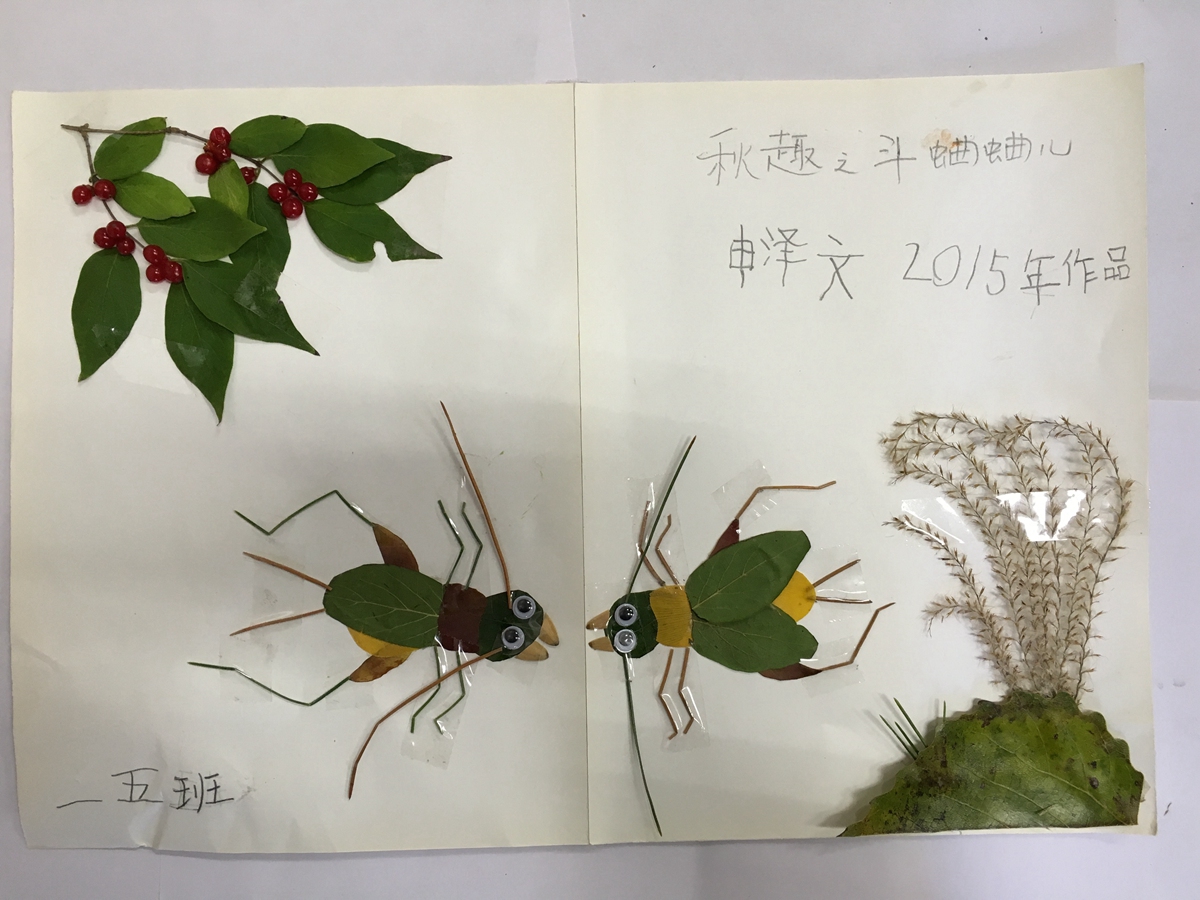 秋趣之斗蛐蛐儿
申泽文 2015年作品
一五班